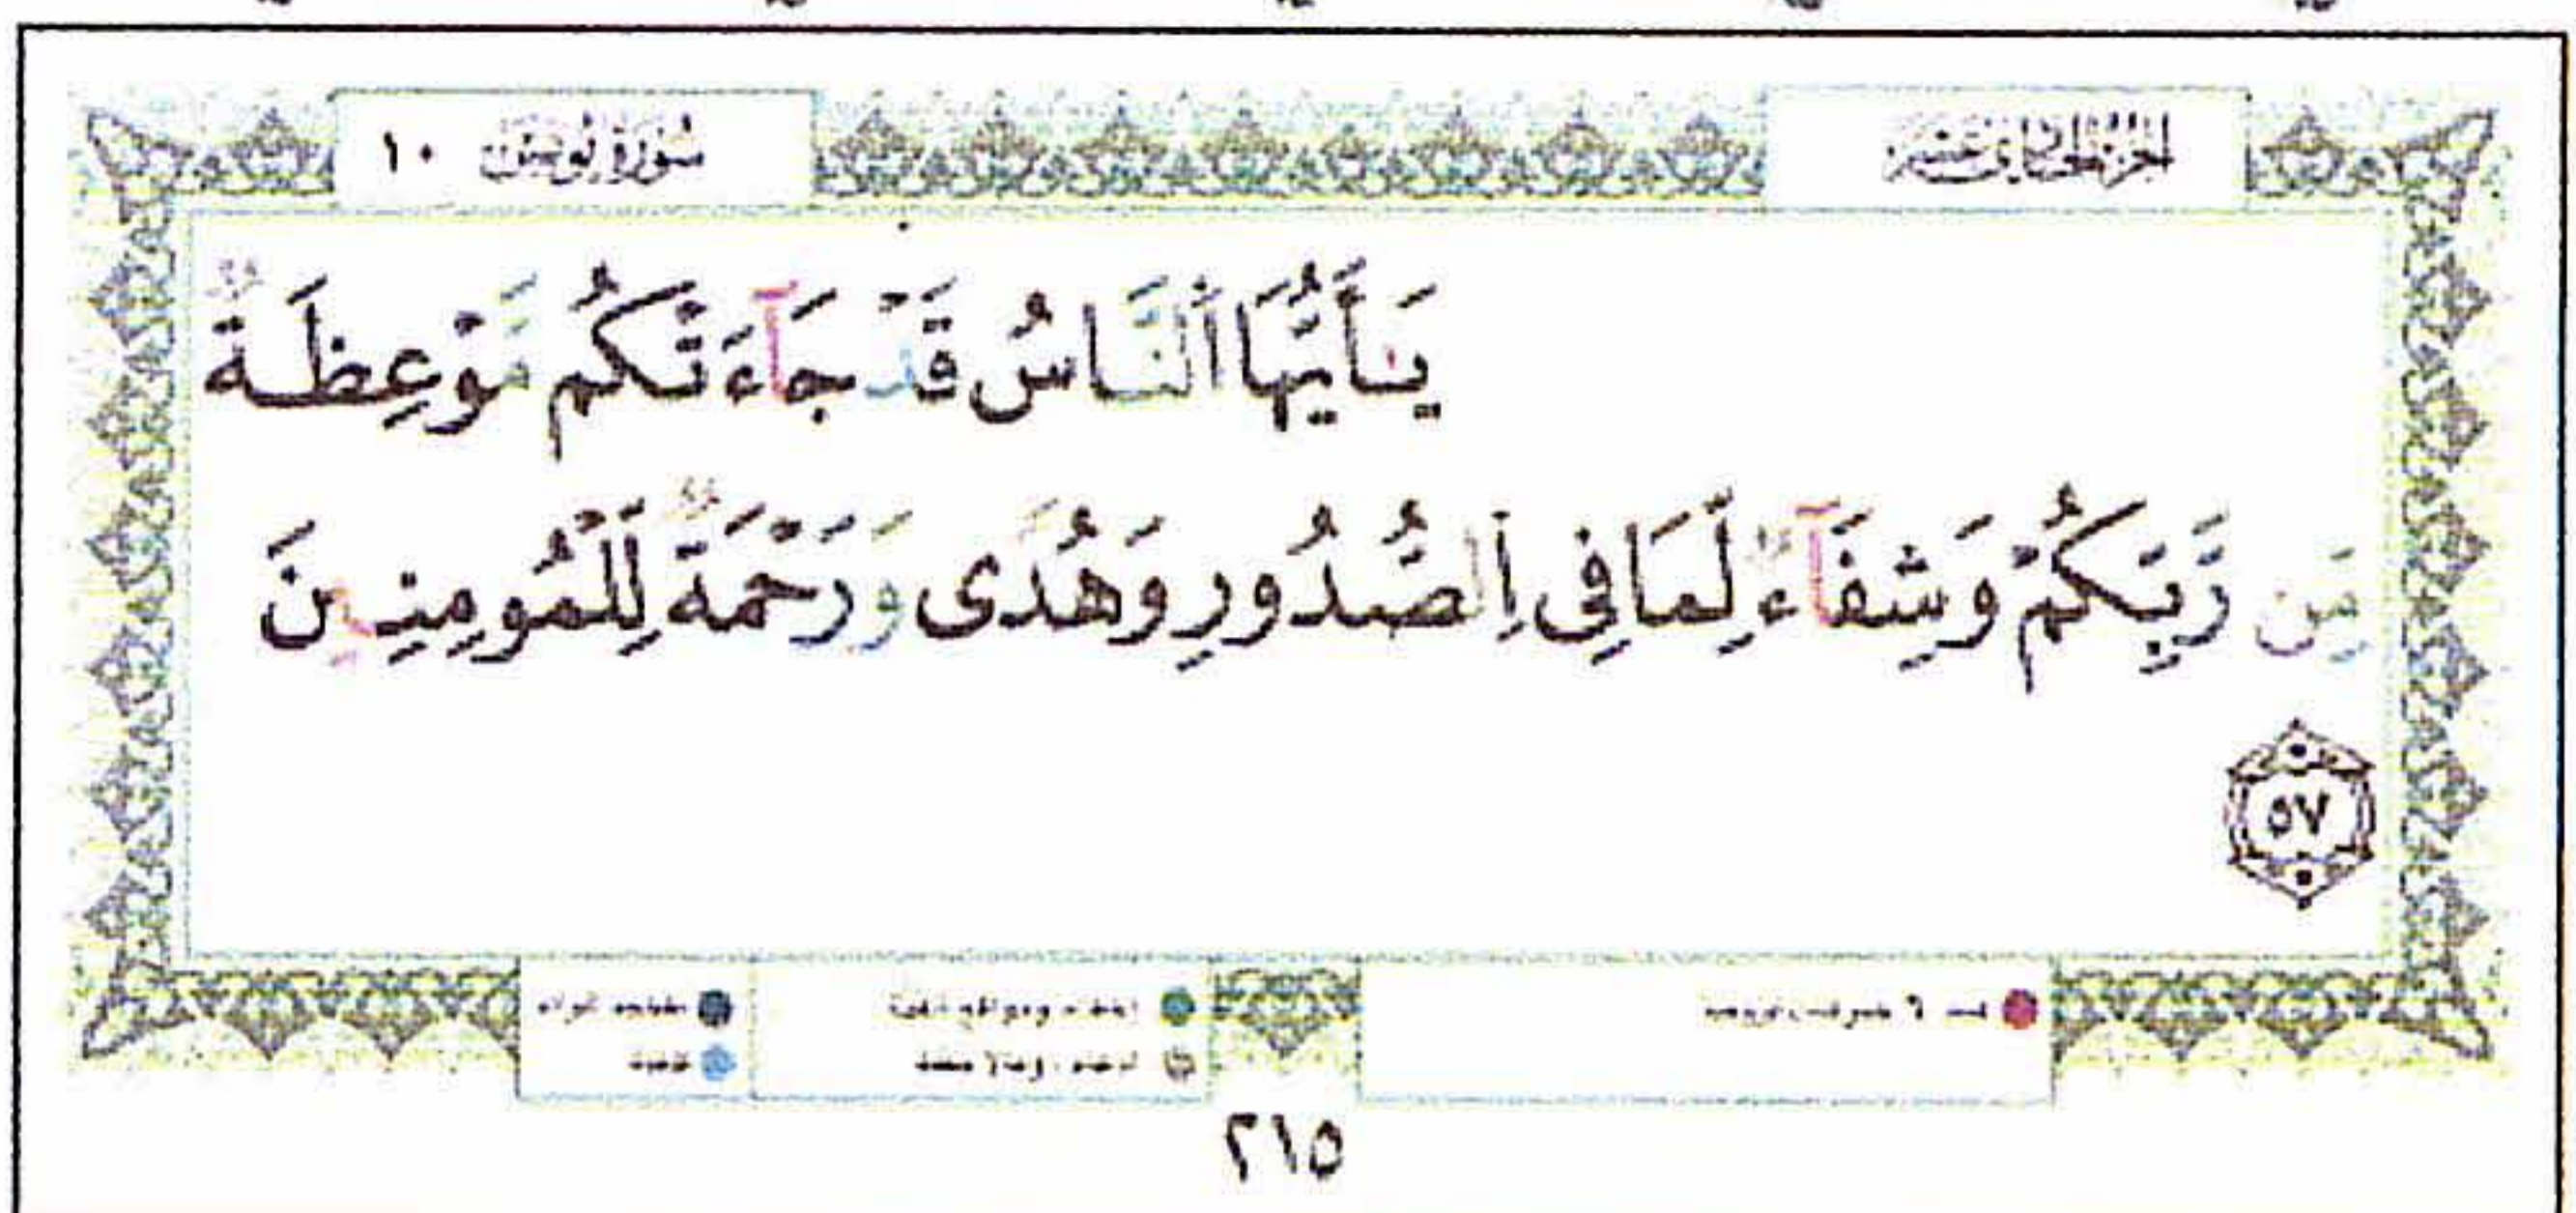 الجزء الحادي عشر
سُورَةُ يُونُسَ ١٠
يَـٰٓأَيُّهَا اَ۬لنَّاسُ قَدْ جَآءَتْكُم مَّوْعِظَةٌ
مِّن رَّبِّكُمْ وَشِفَآءٌ لِّمَا فِى اِ۬لصُّدُورِ وَهُدًى وَرَحْمَةٌ لِّلْمُومِنِينَ
٥٧
٢١٥